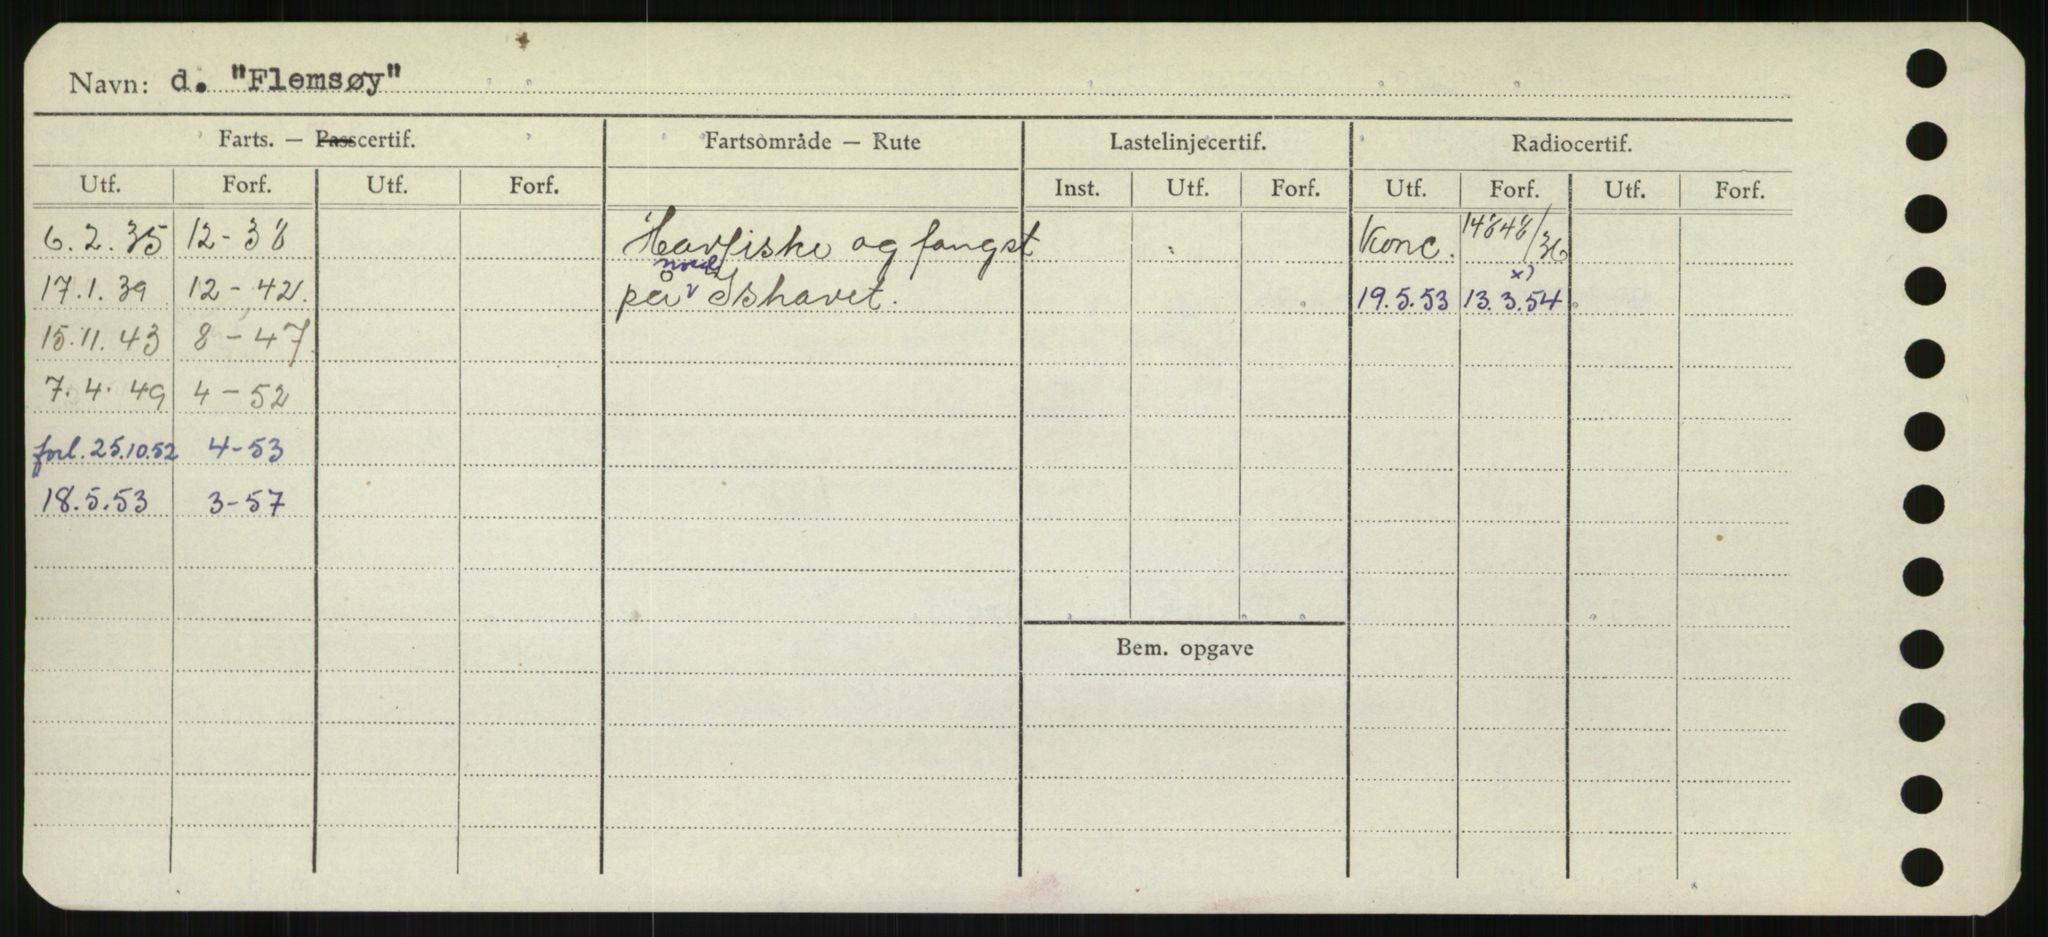 Navn: d. "Flemsøy"
Farts. — Passcertif. Fartsområde — Rute Lastelinjecertif. Radiocertif.
Utf. Forf. Utf. Forf. Inst. Utf. Forf. Utf. Forf. Utf. Forf.
6.2.35 12-38 Havfiske og fangst Konc. 14848/36
nord x)
17.1.39 12-42. på v Ishavet. 19.5.53 13.3.54
15.11.43 8-47
7.4.49 4-52
forl. 25.10.52 4-53
18.5.53 3-57
Bem. opgave